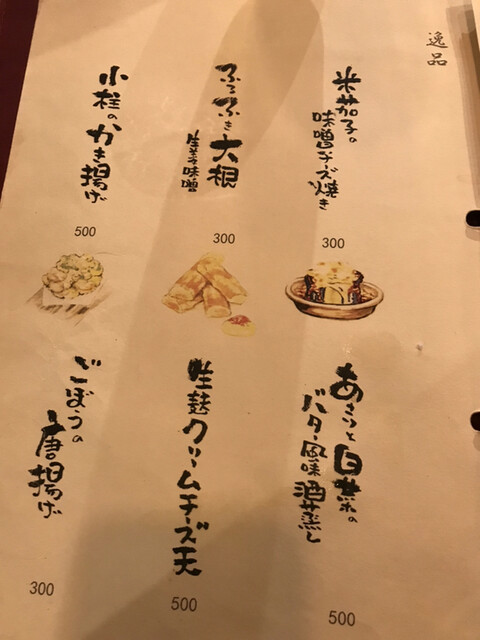 逸品
米茄子の
味噌チーズ焼き
300
ふろふき大根
生姜味噌
300
小柱のかき揚げ
500
あさりと白菜の
バター風味酒蒸し
500
生麩クリームチーズ天
500
ごぼうの
唐揚げ
300